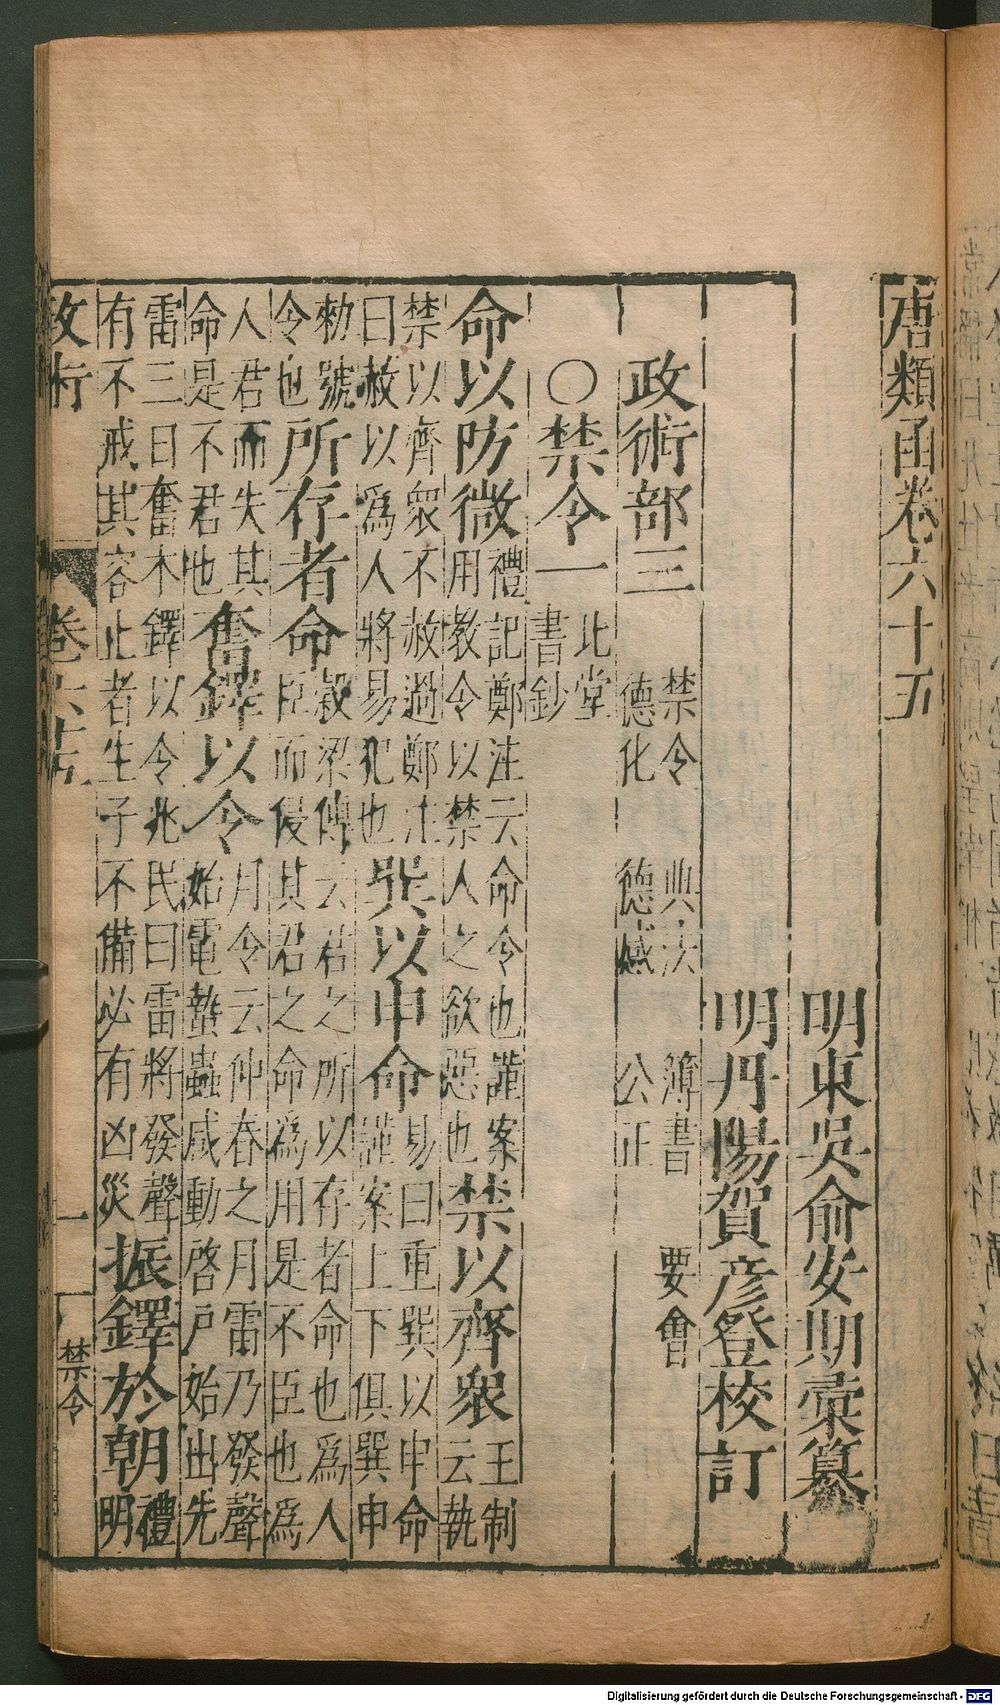 唐類函卷六十五
明東吳俞安期彙纂
明丹陽賀彥登校訂
政術部三
禁令 典法 簿書 要會
德化 德感 公正
○禁令一 北堂書鈔
命以防微 禮記鄭注云命令也謹案用教令以禁人之欲惡也 禁以齊衆 王制云執
禁以齊衆不赦過鄭注曰赦以爲人將易犯也 巽以申命 易曰重巽以申命謹案上下俱巽申
勑號令也 所存者命 穀梁傳云君之所以存者命也爲人臣而侵其君之命爲用是不臣也爲
人君而失其命是不君也 奮鐸以令 月令云仲春之月雷乃發聲始電蟄蟲咸動啓戶始出先
雷三日奮木鐸以令兆民曰雷將發聲有不戒其容止者生子不備必有凶災 振鐸於朝 禮明
政術 卷六十五 一 禁令
Digitalisierung gefördert durch die Deutsche Forschungsgemeinschaft - DFG